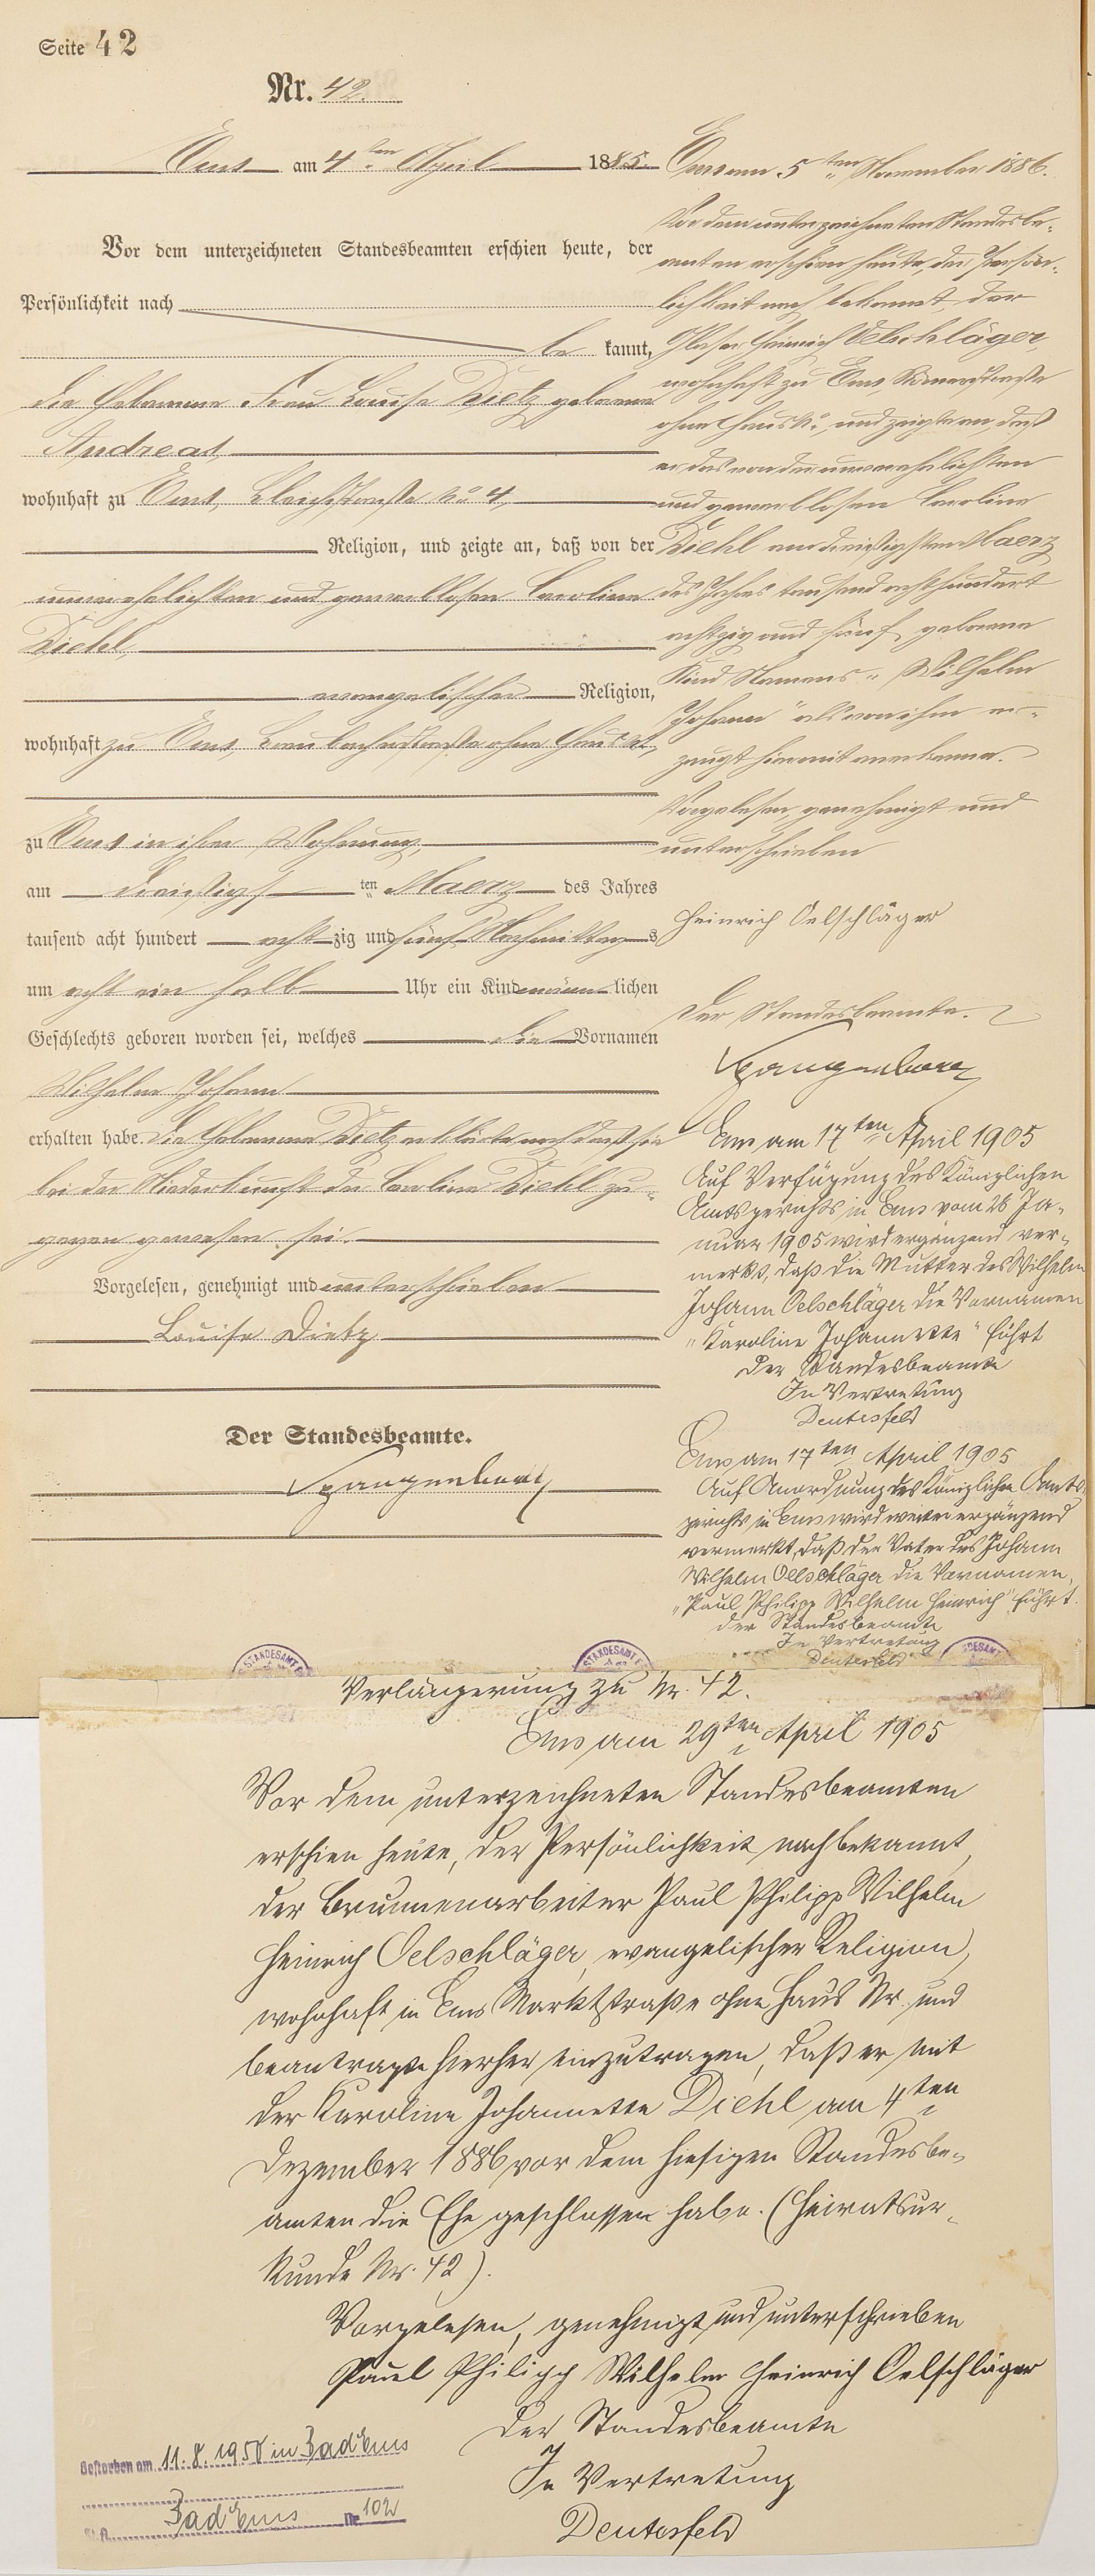 Seite 42
Nr. 42.
Ems am 4ten April 1885.
Vor dem unterzeichneten Standesbeamten erschien heute, der
Persönlichkeit nach
be kannt,
die Hebamme Frau Louise Dietz geborene
Andreas,
wohnhaft zu Ems, Bleichstraße No 4,
Religion, und zeigte an, daß von der
unverehelichten und gewerblosen Caroline
Diehl,
evangelischer Religion,
wohnhaft zu Ems, Braubacherstraße ohne Haus No,
zu Ems in ihrer Wohnung,
am dreißigsten Maerz des Jahres
tausend acht hundert achtzig und fünf Nachmittags
um acht ein halb Uhr ein Kind männlichen
Geschlechts geboren worden sei, welches die Vornamen
Wilhelm Johann
erhalten habe. Die Hebamme Dietz erklärte noch daß sie
bei der Niederkunft der Caroline Diehl zu-
gegen gewesen sei.
Vorgelesen, genehmigt und unterschrieben
Louise Dietz
Der Standesbeamte.
Spangenberg
Ems am 5ten November 1886.
Vor dem unterzeichneten Standesbe-
amten erschien heute, der Persön-
lichkeit nach bekannt, der
Glaser Heinrich Oelschläger,
wohnhaft zu Ems, Römerstraße
ohne Haus No, und zeigte an, daß
er das von der unverehelichten
und gewerblosen Caroline
Diehl am dreißigsten Maerz
des Jahres tausend achthundert
achtzig und fünf geborene
Kind Namens "Wilhelm
Johann" als von ihm er-
zeugt hiermit anerkenne.
Vorgelesen, genehmigt und
unterschrieben
Heinrich Oelschläger
Der Standesbeamte.
Spangenberg
Ems am 17ten April 1905
Auf Verfügung des Königlichen
Amtsgerichts in Ems vom 28 Ja-
nuar 1905 wird ergänzend ver-
merkt, daß die Mutter des Wilhelm
Johann Oelschläger die Vornamen
"Karoline Johannette" führt
Der Standesbeamte
In Vertretung
Deutesfeld
Ems am 17ten April 1905
Auf Anordnung des Königlichen Amts-
gerichts in Ems wird weiter ergänzend
vermerkt, daß der Vater des Johann
Wilhelm Oelschläger die Vornamen,
"Paul Philipp Wilhelm Heinrich" führt.
Der Standesbeamte
In Vertretung
Deutesfeld
STANDESAMT STANDESAMT STANDESAMT
Verlängerung zu Nr. 42.
Ems am 29ten April 1905
Vor dem unterzeichneten Standesbeamten
erschien heute, der Persönlichkeit nach bekannt,
der Brunnenarbeiter Paul Philipp Wilhelm
Heinrich Oelschläger, evangelischer Religion,
wohnhaft in Ems Marktstraße ohne Haus Nr. und
beantragte hierher einzutragen, daß er mit
der Karoline Johannette Diehl am 4ten
Dezember 1886 vor dem hiesigen Standesbe-
amten die Ehe geschlossen habe. (Heiratsur-
kunde Nr. 42).
Vorgelesen, genehmigt und unterschrieben
Paul Philipp Wilhelm Heinrich Oelschläger
Der Standesbeamte
In Vertretung
Deutesfeld
Gestorben am 11.8.1958 in Bad Ems
St.A. Bad Ems Nr. 102